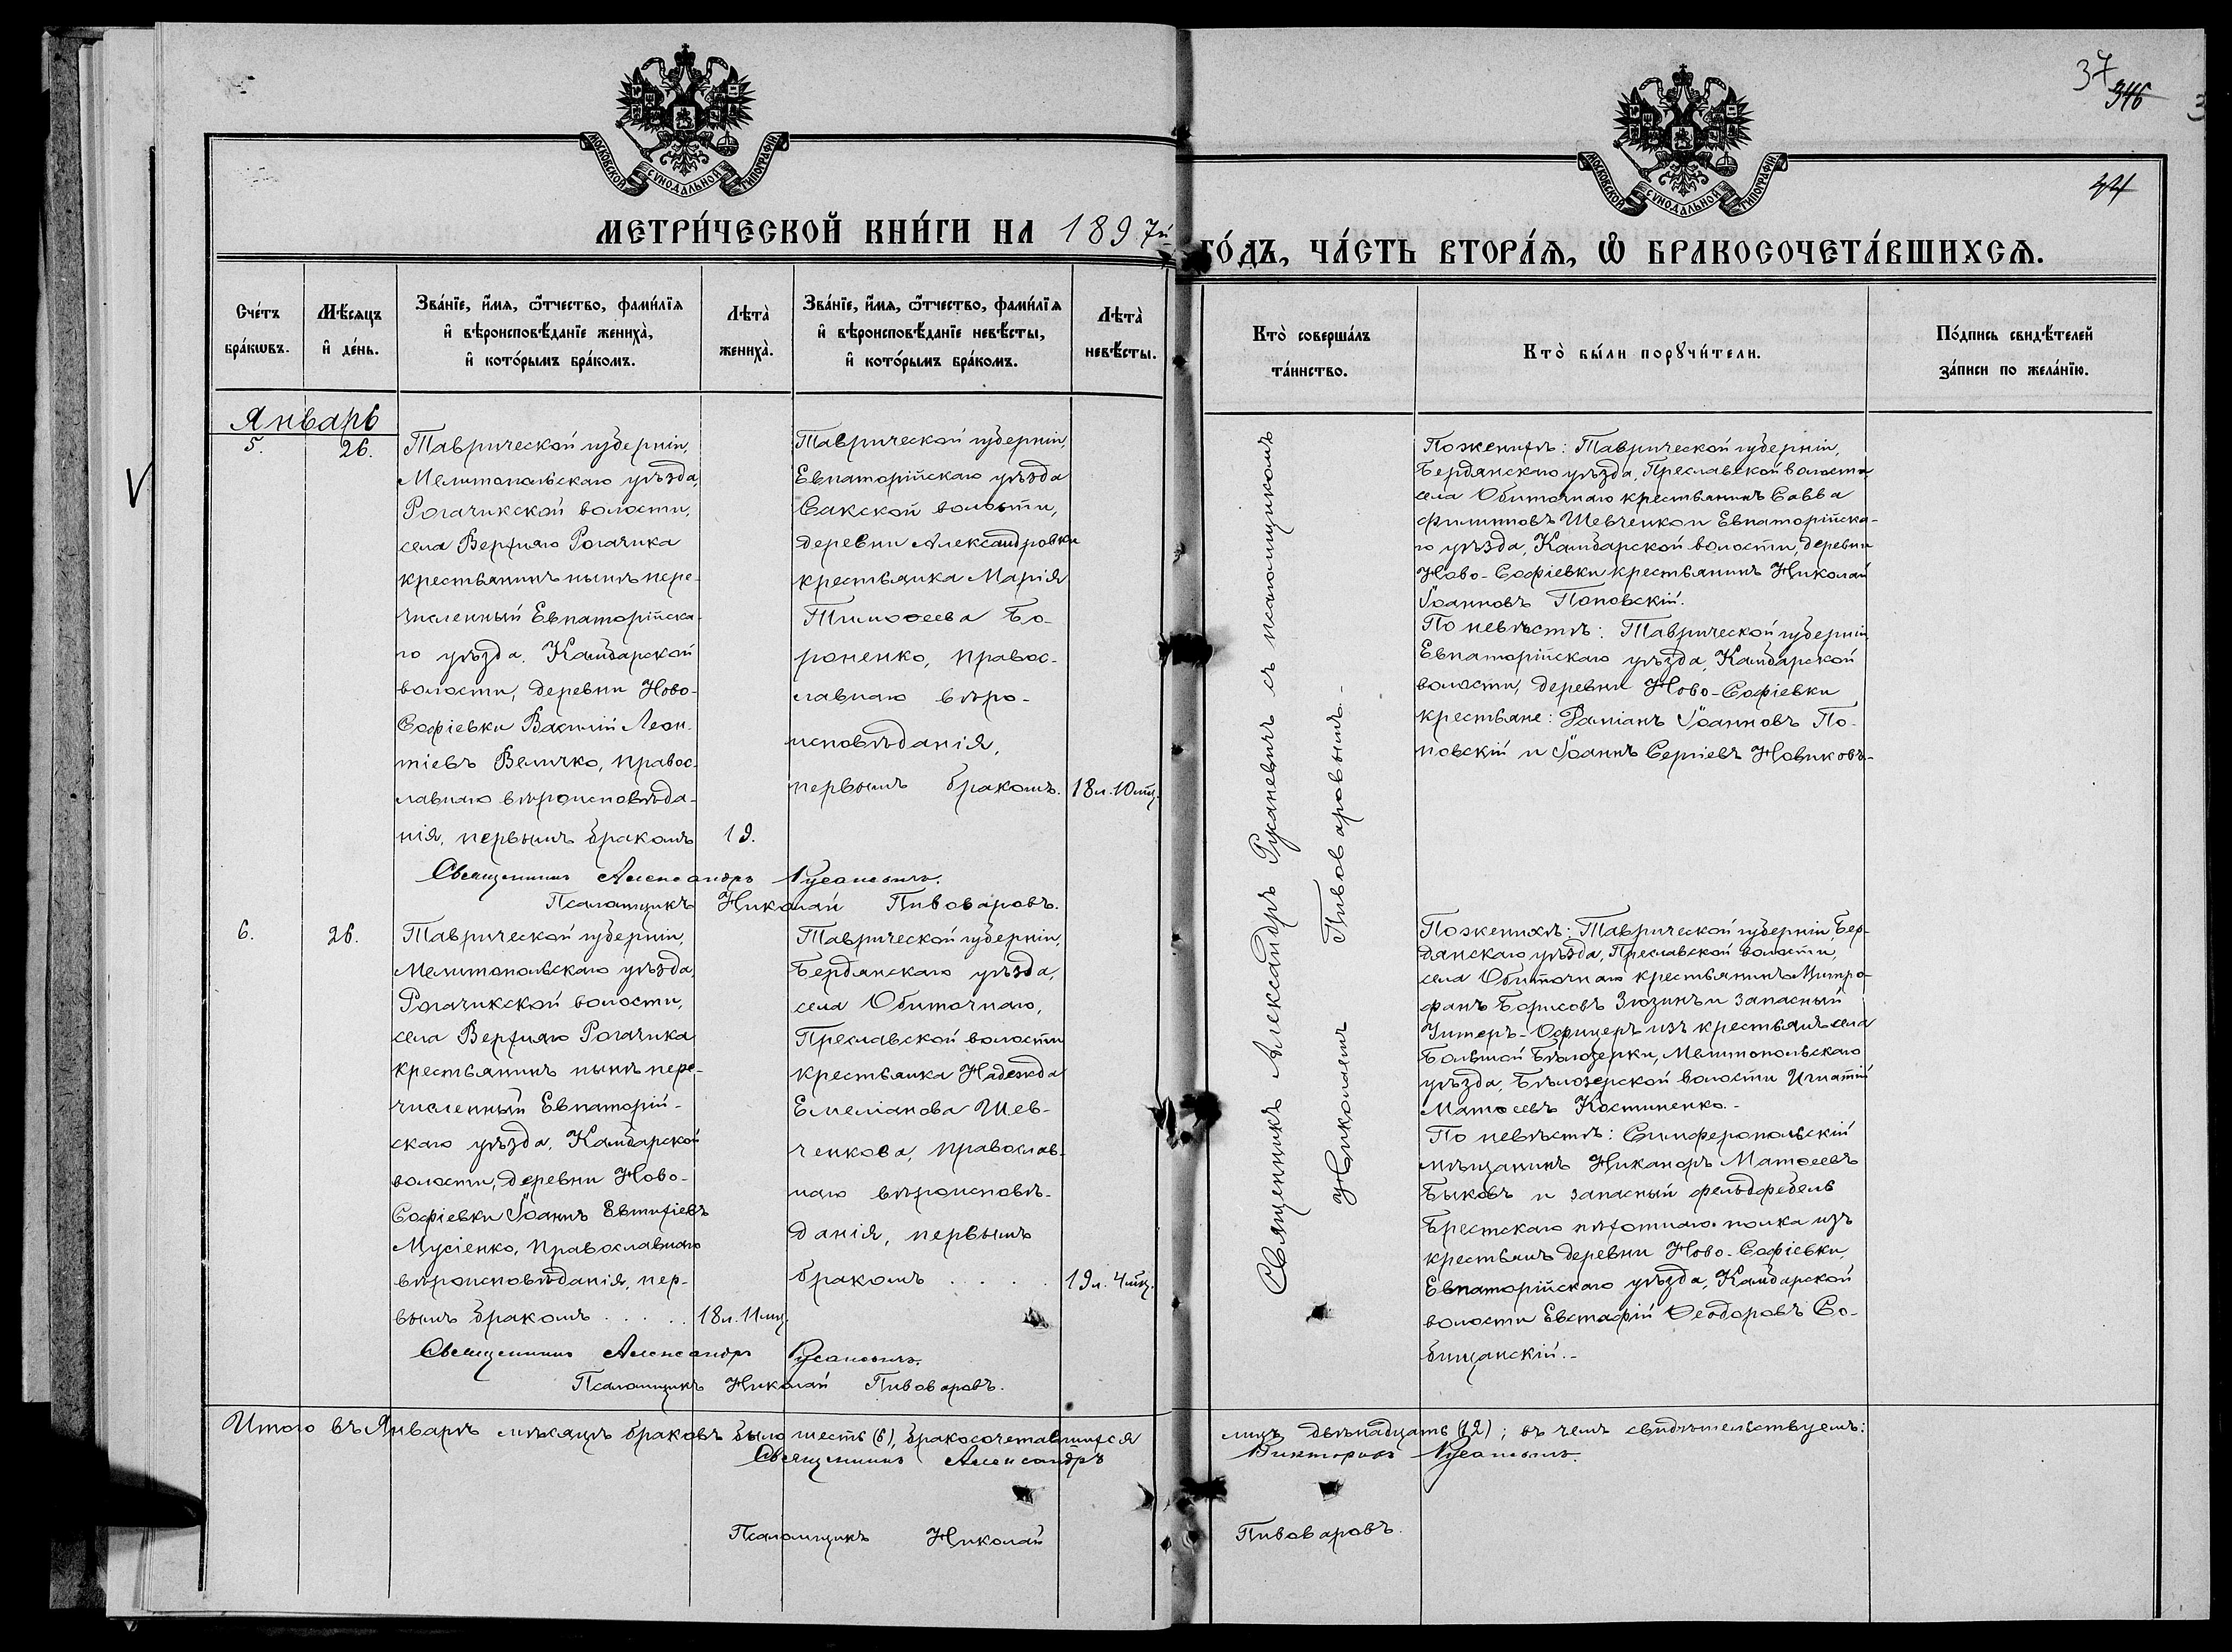 37
346
44
МОСКОВСКОЙ СѴНОДАЛЬНОЙ ТИПОГРАФІИ
МОСКОВСКОЙ СѴНОДАЛЬНОЙ ТИПОГРАФІИ
МЕТРИ́ЧЕСКОЙ КНИ́ГИ НА 1897й
ГО́ДЪ, ЧА́СТЬ ВТОРА́Ѧ, Ѽ БРАКОСОЧЕТА́ВШИХСѦ.
Сче́тъ
бра́кѡвъ.
Мѣ́сяцъ
и҆ де́нь.
Зва́нїе, и҆́мя, ѻ҆́тчество, фами́лїя
и҆ вѣроисповѣ́данїе жениха̀,
и҆ кото́рымъ бра́комъ.
Лѣта̀
жениха̀.
Зва́нїе, и҆́мя, ѻ҆́тчество, фами́лїя
и҆ вѣроисповѣ́данїе невѣ́сты,
и҆ кото́рымъ бра́комъ.
Лѣта̀
невѣ́сты.
Кто̀ соверша́лъ
та́инство.
Кто̀ бы́ли порꙋчи́тели.
По́дпись свидѣ́телей
за́писи по жела́нїю.
Январь
5.
26.
Таврической губерніи,
Мелитопольскаго уѣзда,
Рогачикской волости,
села Верхняго Рогачика
крестьянинъ нынѣ пере-
численный Евпаторійска-
го уѣзда, Камбарской
волости, деревни Ново-
Софіевки Василій Леон-
тіевъ Величко, правос-
лавнаго вѣроисповѣда-
нія, первымъ бракомъ
19.
Таврической губерніи,
Евпаторійскаго уѣзда
Сакской волости,
деревни Александровки
крестьянка Марія
Тимоѳеева Бо-
роненко, правос-
лавнаго вѣро-
исповѣданія,
первымъ бракомъ.
18 л. 10 мц.
Священникъ Александръ Русаневичъ.
Псаломщикъ Николай Пивоваровъ.
Священникъ Александръ Русаневичъ съ псаломщикомъ
Николаемъ Пивоваровымъ.-
По женихѣ: Таврической губерніи,
Бердянскаго уѣзда, Преславской волости,
села Обиточнаго крестьянинъ Савва
Филипповъ Шевченко и Евпаторійска-
го уѣзда, Камбарской волости, деревни
Ново-Софіевки крестьянинъ Николай
Іоанновъ Поповскій.
По невѣстѣ: Таврической губерніи
Евпаторійскаго уѣзда, Камбарской
волости, деревни Ново-Софіевки
крестьяне: Даміанъ Іоанновъ По-
повскій и Іоаннъ Сергіевъ Новиковъ.-
6.
26.
Таврической губерніи,
Мелитопольскаго уѣзда,
Рогачикской волости,
села Верхняго Рогачика
крестьянинъ нынѣ пере-
численный Евпаторій-
скаго уѣзда, Камбарской
волости, деревни Ново-
Софіевки Іоаннъ Евтихіевъ
Мусіенко, православнаго
вѣроисповѣданія, пер-
вымъ бракомъ . . . . .
18 л. 11 мц.
Таврической губерніи,
Бердянскаго уѣзда,
села Обиточнаго,
Преславской волости
крестьянка Надежда
Емеліанова Шев-
ченкова, православ-
наго вѣроисповѣ-
данія, первымъ
бракомъ . . . .
19 л. 4 мц.
Священникъ Александръ Русаневичъ.
Псаломщикъ Николай Пивоваровъ.
По женихѣ: Таврической губерніи, Бер-
дянскаго уѣзда, Преславской волости,
села Обиточнаго крестьянинъ Митро-
фанъ Борисовъ Зюзинъ и запасный
Унтеръ-Офицеръ изъ крестьянъ села
Большой Бѣлозерки, Мелитопольскаго
уѣзда, Бѣлозерской волости Игнатій
Матѳеевъ Костиненко.-
По невѣстѣ: Симферопольскій
мѣщанинъ Никаноръ Матѳеевъ
Быковъ и запасный фельдфебель
Брестскаго пѣхотнаго полка изъ
крестьянъ деревни Ново-Софіевки,
Евпаторійскаго уѣзда, Камбарской
волости Евстафій Ѳеодоровъ Со-
бищанскій.-
Итого въ Январѣ мѣсяцѣ браковъ было шесть (6), бракосочетавшихся
лицъ двѣнадцать (12); въ чемъ свидѣтельствуемъ:
Священникъ Александръ Викторовъ Русаневичъ.
Псаломщикъ Николай Пивоваровъ.